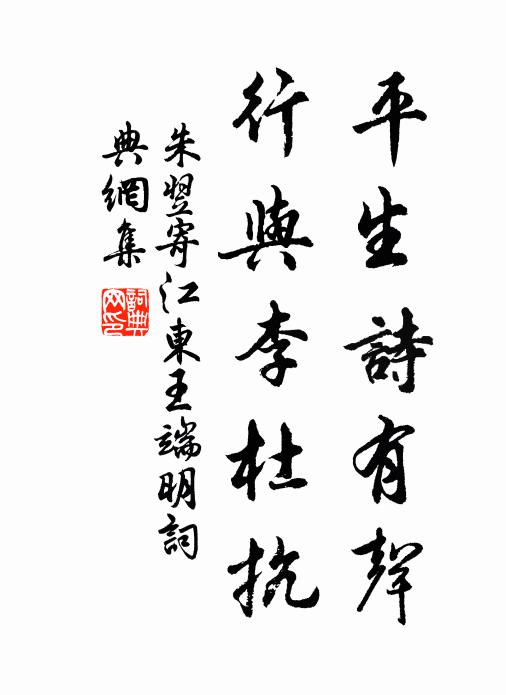 平生詩有聲
行與李杜抗
朱翌寄江東王端明詞
典網集
詞典網印